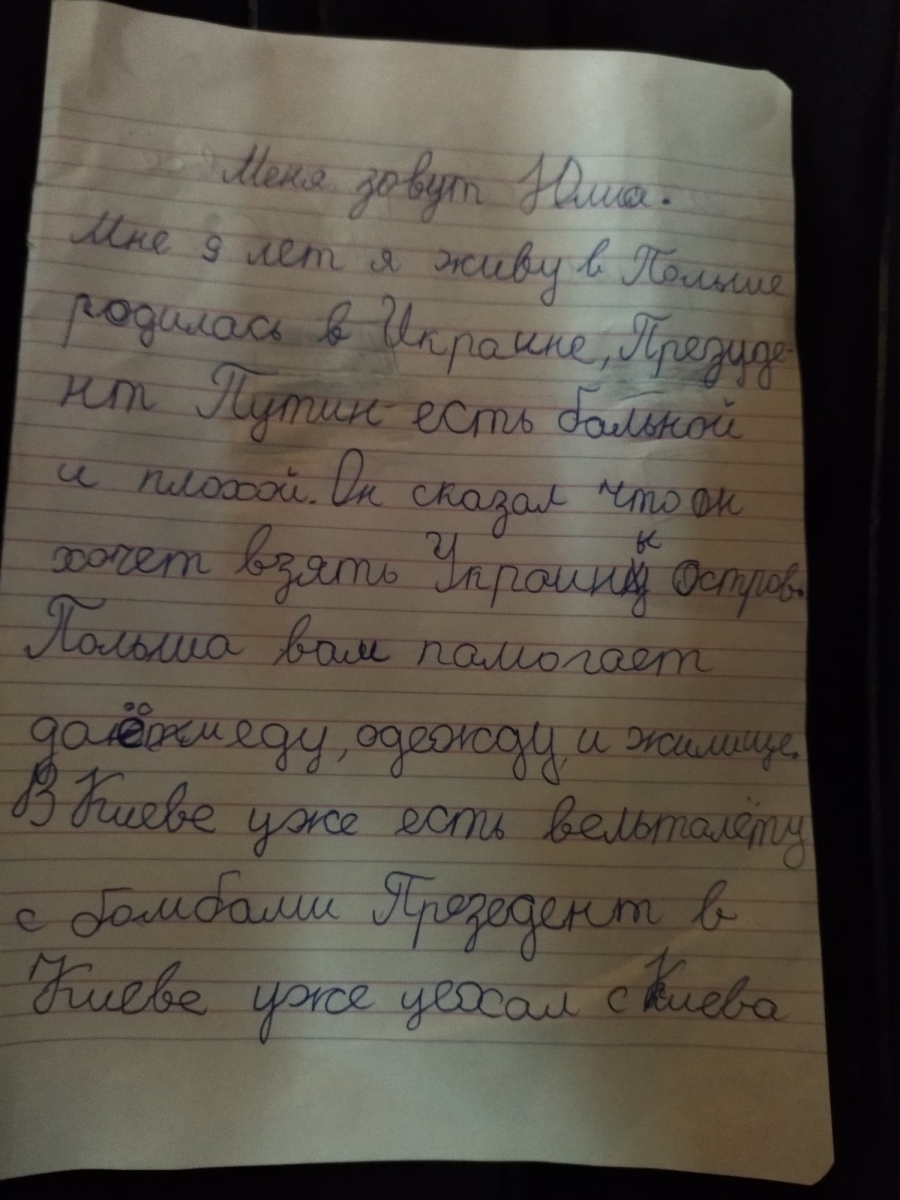 Меня зовут Юлиа.
Мне 9 лет я живу в Польше
родилась в Украине, Презуде-
нт Путин есть бальной
и плохой. Он сказал что он
хочет взять Украины Остров.
Польша вам памогает
еду, одежду, и жилище.
В Киеве уже есть вельталёту
с бомбами Презедент в
Киеве уже уехал с Киева